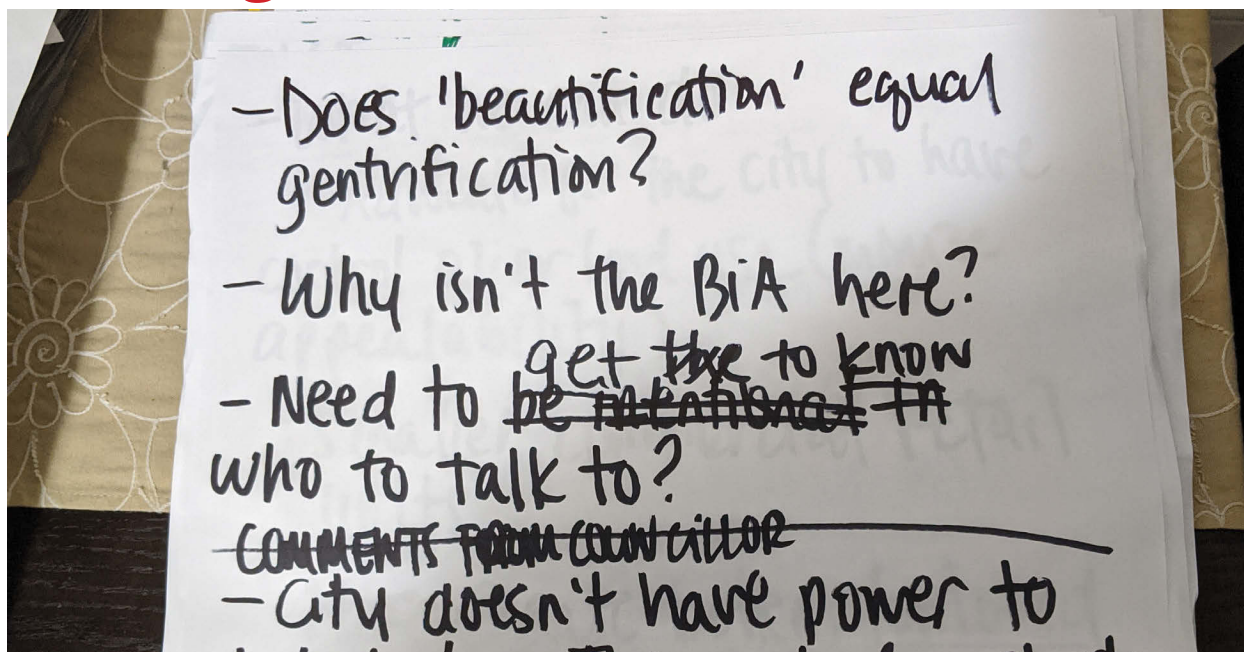 -Does 'beautification' equal
gentrification?
- Why isn't the BiA here?
get to know
- Need to be intentional in
who to talk to?
COMMENTS FROM COUNCILLOR
- City doesn't have power to